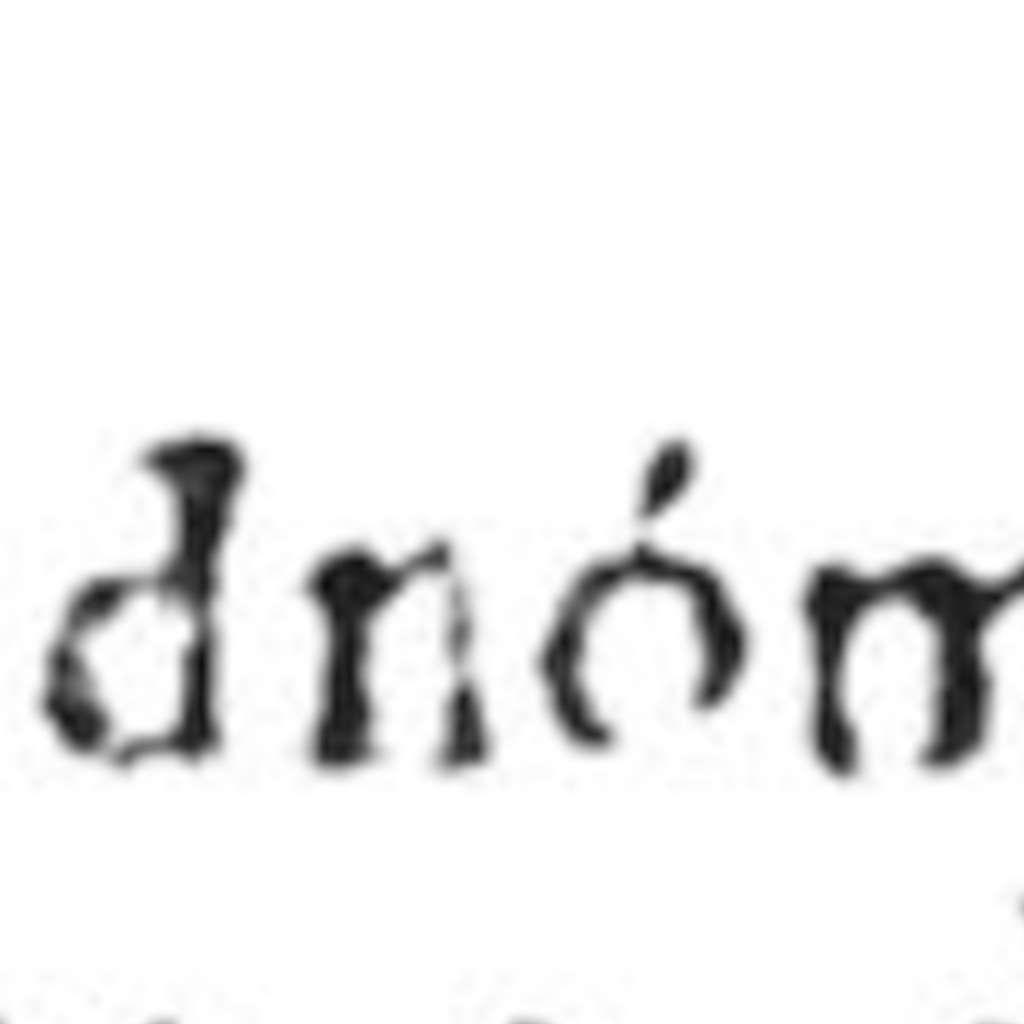 dnóm